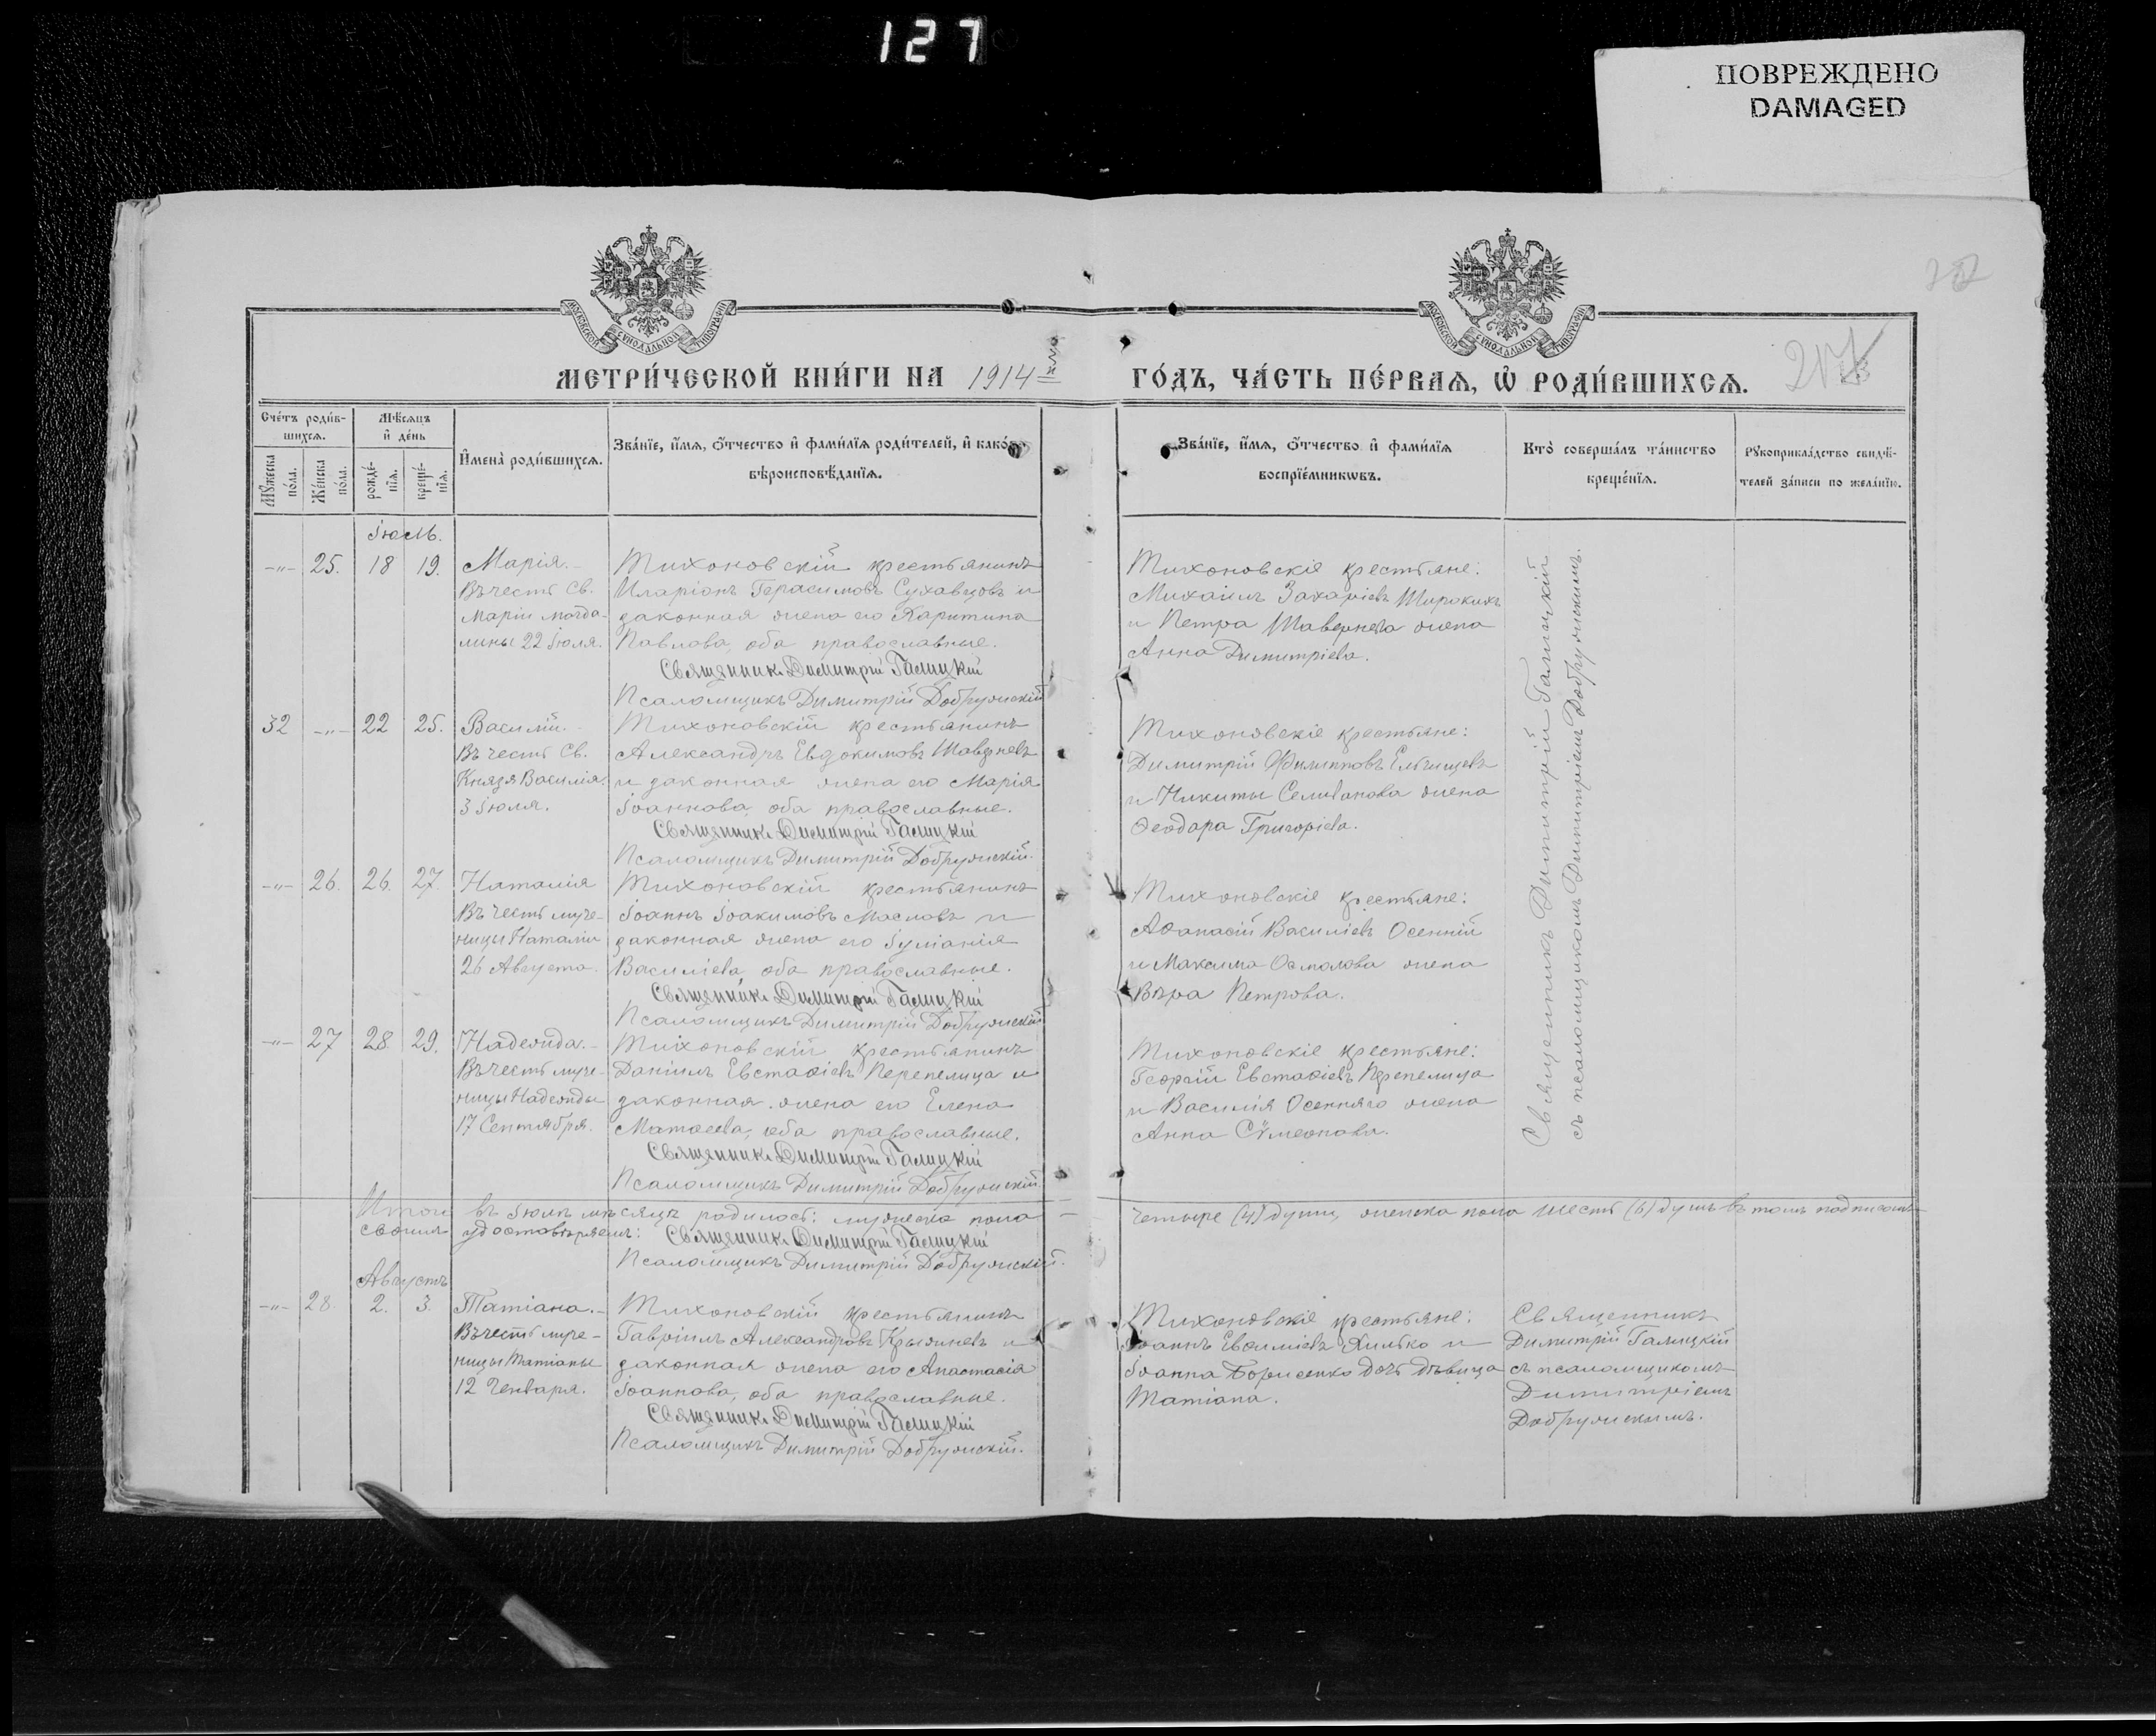 127
ПОВРЕЖДЕНО
DAMAGED
МОСКОВСКОЙ СѴНОДАЛЬНОЙ ТИПОГРАФІИ
МОСКОВСКОЙ СѴНОДАЛЬНОЙ ТИПОГРАФІИ
МЕТРИ́ЧЕСКОЙ КНИ́ГИ НА 1914 ГО́ДЪ, ЧА́СТЬ ПЕ́РВАѦ, Ѡ РОДИ́ВШИХСѦ.
Сче́тъ роди́в-
шихсѧ.
Мѣ́сѧцъ
и де́нь
Мꙋжеска по́ла.
Же́нска по́ла.
рожде́-
нїѧ.
креще́-
нїѧ.
Имена̀ роди́вшихсѧ.
Зва́нїе, и́мѧ, о́тчество и фами́лїѧ роди́телей, и како́гѡ
вѣроисповѣ́данїѧ.
Зва́нїе, и́мѧ, о́тчество и фами́лїѧ
воспрїе́мникѡвъ.
Кто̀ соверша́лъ та́инство
креще́нїѧ.
Рꙋкоприкла́дство свидѣ́-
телей за́писи по жела́нїю.
Іюль.
-"- 25. 18 19.
Марія.-
Въ честь Св.
Маріи Магда-
лины 22 Іюля.
Тихоновскій крестьянинъ
Иларіонъ Герасимовъ Сухавцовъ и
законная жена его Харитина
Павлова, оба православные.
Священникъ Димитрій Галицкій
Псаломщикъ Димитрій Добружскій
Тихоновскіе крестьяне:
Михаилъ Захаріевъ Широкихъ
и Петра Шавернева жена
Анна Димитріева.
Священникъ Димитрій Галицкій
съ псаломщикомъ Димитріемъ Добружскимъ.
32 -"- 22 25.
Василій.-
Въ честь Св.
Князя Василія
3 Іюля.
Тихоновскій крестьянинъ
Александръ Евдокимовъ Шаверневъ
и законная жена его Марія
Іоаннова, оба православные.
Священникъ Димитрій Галицкій
Псаломщикъ Димитрій Добружскій.
Тихоновскіе крестьяне:
Димитрій Филипповъ
и Никиты Селиванова жена
Ѳеодора Григоріева.
-"- 26. 26. 27.
Наталія
Въ честь муче-
ницы Наталіи
26 Августа.
Тихоновскій крестьянинъ
Іоаннъ Іоакимовъ Масловъ и
законная жена его Іуліанія
Василіева, оба православные.
Священникъ Димитрій Галицкій
Псаломщикъ Димитрій Добружскій
Тихоновскіе крестьяне:
Аѳанасій Василіевъ Осенній
и Максима жена
Вѣра Петрова.
-"- 27 28. 29.
Надежда.-
Въ честь муче-
ницы Надежды
17 Сентября.
Тихоновскій крестьянинъ
Даніилъ Евстаѳіевъ Перепелица и
законная жена его Елена
Матѳеева, оба православные.
Священникъ Димитрій Галицкій
Псаломщикъ Димитрій Добружскій.
Тихоновскіе крестьяне:
Георгій Евстаѳіевъ Перепелица
и Василія Осенняго жена
Анна Сѵмеонова.
Итого въ Іюлѣ мѣсяцѣ родилось: мужеска пола - четыре (4) души, женска пола шесть (6) душъ въ томъ подписомъ
своимъ удостовѣряемъ: Священникъ Димитрій Галицкій
Псаломщикъ Димитрій Добружскій.
Августъ
-"- 28. 2. 3.
Татіана.-
Въ честь муче-
ницы Татіаны
12 Генваря.
Тихоновскій крестьянинъ
Гавріилъ Александровъ и
законная жена его Анастасія
Іоаннова, оба православные.
Священникъ Димитрій Галицкій
Псаломщикъ Димитрій Добружскій.
Тихоновскіе крестьяне:
Іоаннъ Евѳиміевъ и
Іоанна Борисенко дочь дѣвица
Татіана.
Священникъ
Димитрій Галицкій
съ псаломщикомъ
Димитріемъ
Добружскимъ.